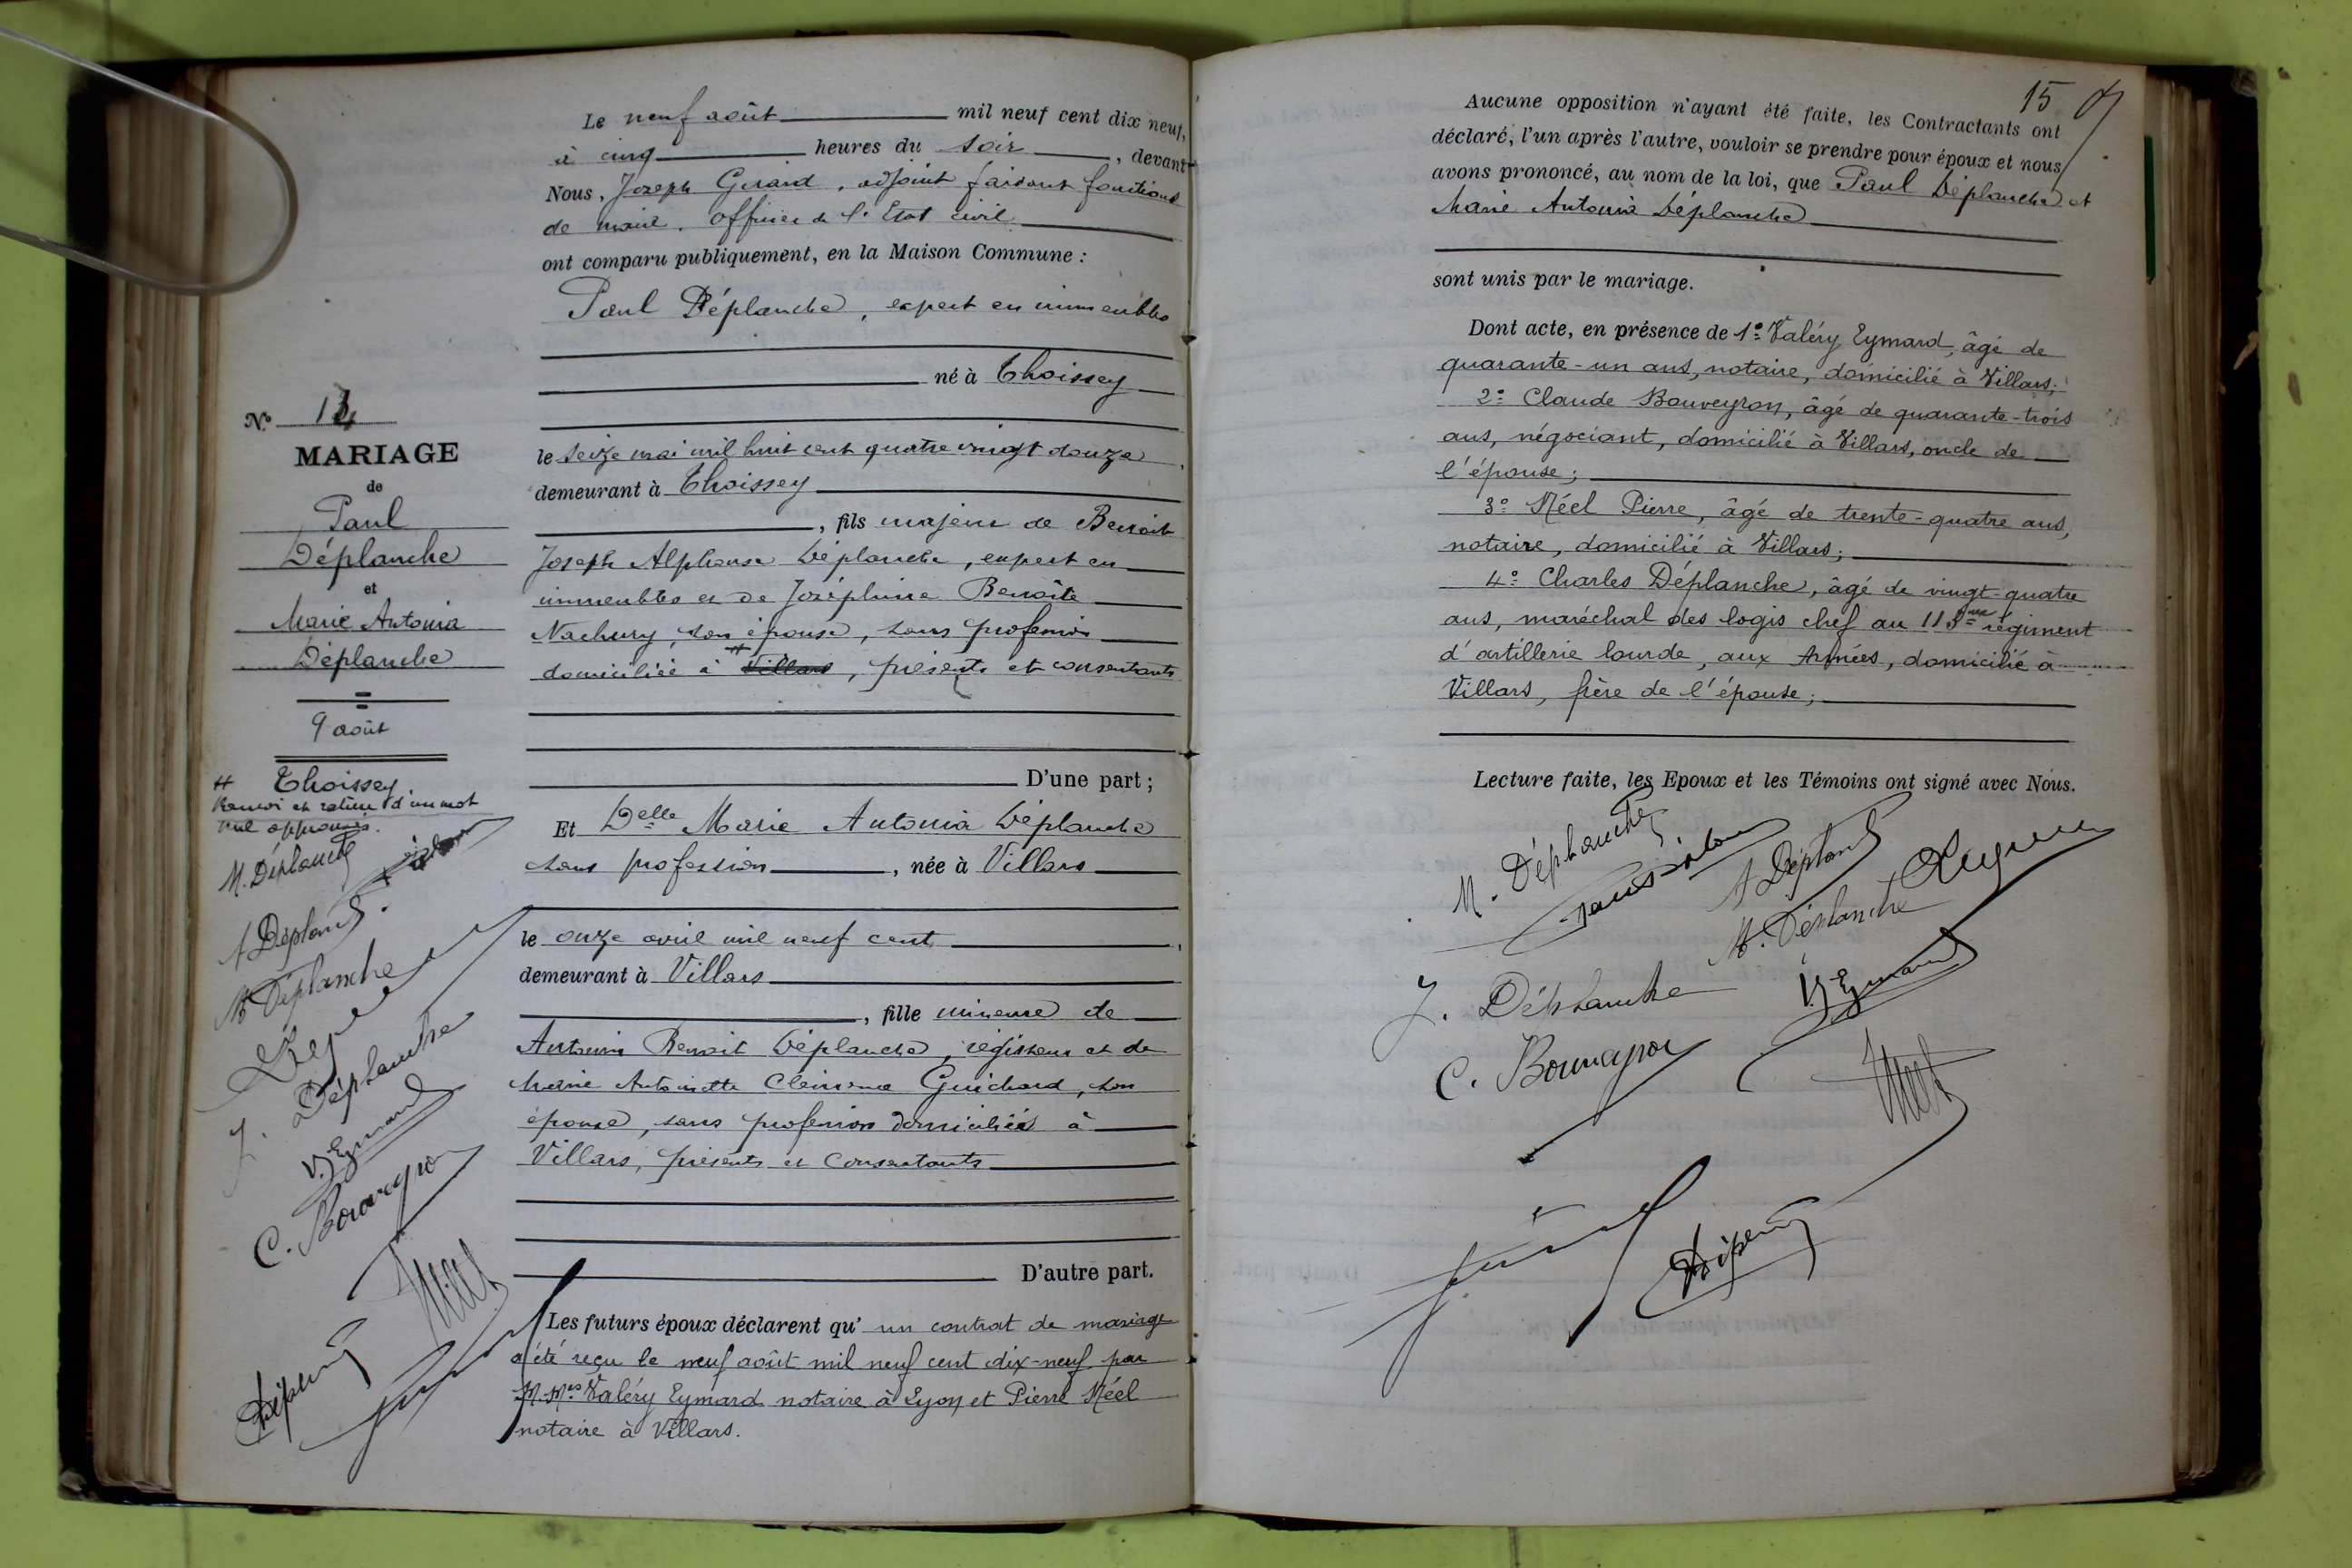 Le neuf août mil neuf cent dix neuf,
à cinq heures du soir, devant
Nous, Joseph Girard, adjoint faisant fonctions
de maire. Officier de l'Etat civil
ont comparu publiquement, en la Maison Commune :
Paul Déplanche, expert en immeubles
né à Thoissey
le seize mai mil huit cent quatre vingt douze,
demeurant à Thoissey
, fils majeur de Benoit
Joseph Alphonse Déplanche, expert en
immeubles et de Joséphine Benoîte
Nachury, son épouse, sans profession
domiciliés à # Villars, présents et consentants
D'une part ;
Et Delle Marie Antonia Déplanche
sans profession, née à Villars
le onze avril mil neuf cent,
demeurant à Villars
, fille mineure de
Antonin Benoit Déplanche, régisseur et de
Marie Antoinette Clémence Guichard, son
épouse, sans profession domiciliés à
Villars, présents et consentants
D'autre part.
Les futurs époux déclarent qu' un contrat de mariage
a été reçu le neuf août mil neuf cent dix-neuf par
M.Mes Valéry Eymard notaire à Lyon et Pierre Méel
notaire à Villars.
N°
MARIAGE
de
Paul
Déplanche
et
Marie Antonia
Déplanche
9 août
# Thoissey
Renvoi et rature d'un mot
nul approuvés.
M. Déplanche
A Déplanche
M Déplanche
J. Déplanche
V. Eymard
C. Bouveyron
15
Aucune opposition n'ayant été faite, les Contractants ont
déclaré, l'un après l'autre, vouloir se prendre pour époux et nous
avons prononcé, au nom de la loi, que Paul Déplanche et
Marie Antonia Déplanche
sont unis par le mariage.
Dont acte, en présence de 1° Valéry Eymard, âgé de
quarante-un ans, notaire, domicilié à Villars;
2° Claude Bouveyron, âgé de quarante-trois
ans, négociant, domicilié à Villars, oncle de
l'épouse;
3° Méel Pierre, âgé de trente-quatre ans,
notaire, domicilié à Villars;
4° Charles Déplanche, âgé de vingt-quatre
ans, maréchal des logis chef au 113me régiment
d'artillerie lourde, aux Armées, domicilié à
Villars, frère de l'épouse;
Lecture faite, les Epoux et les Témoins ont signé avec Nous.
M. Déplanche
A Déplanche
M. Déplanche
J. Déplanche
V. Eymard
C. Bouveyron